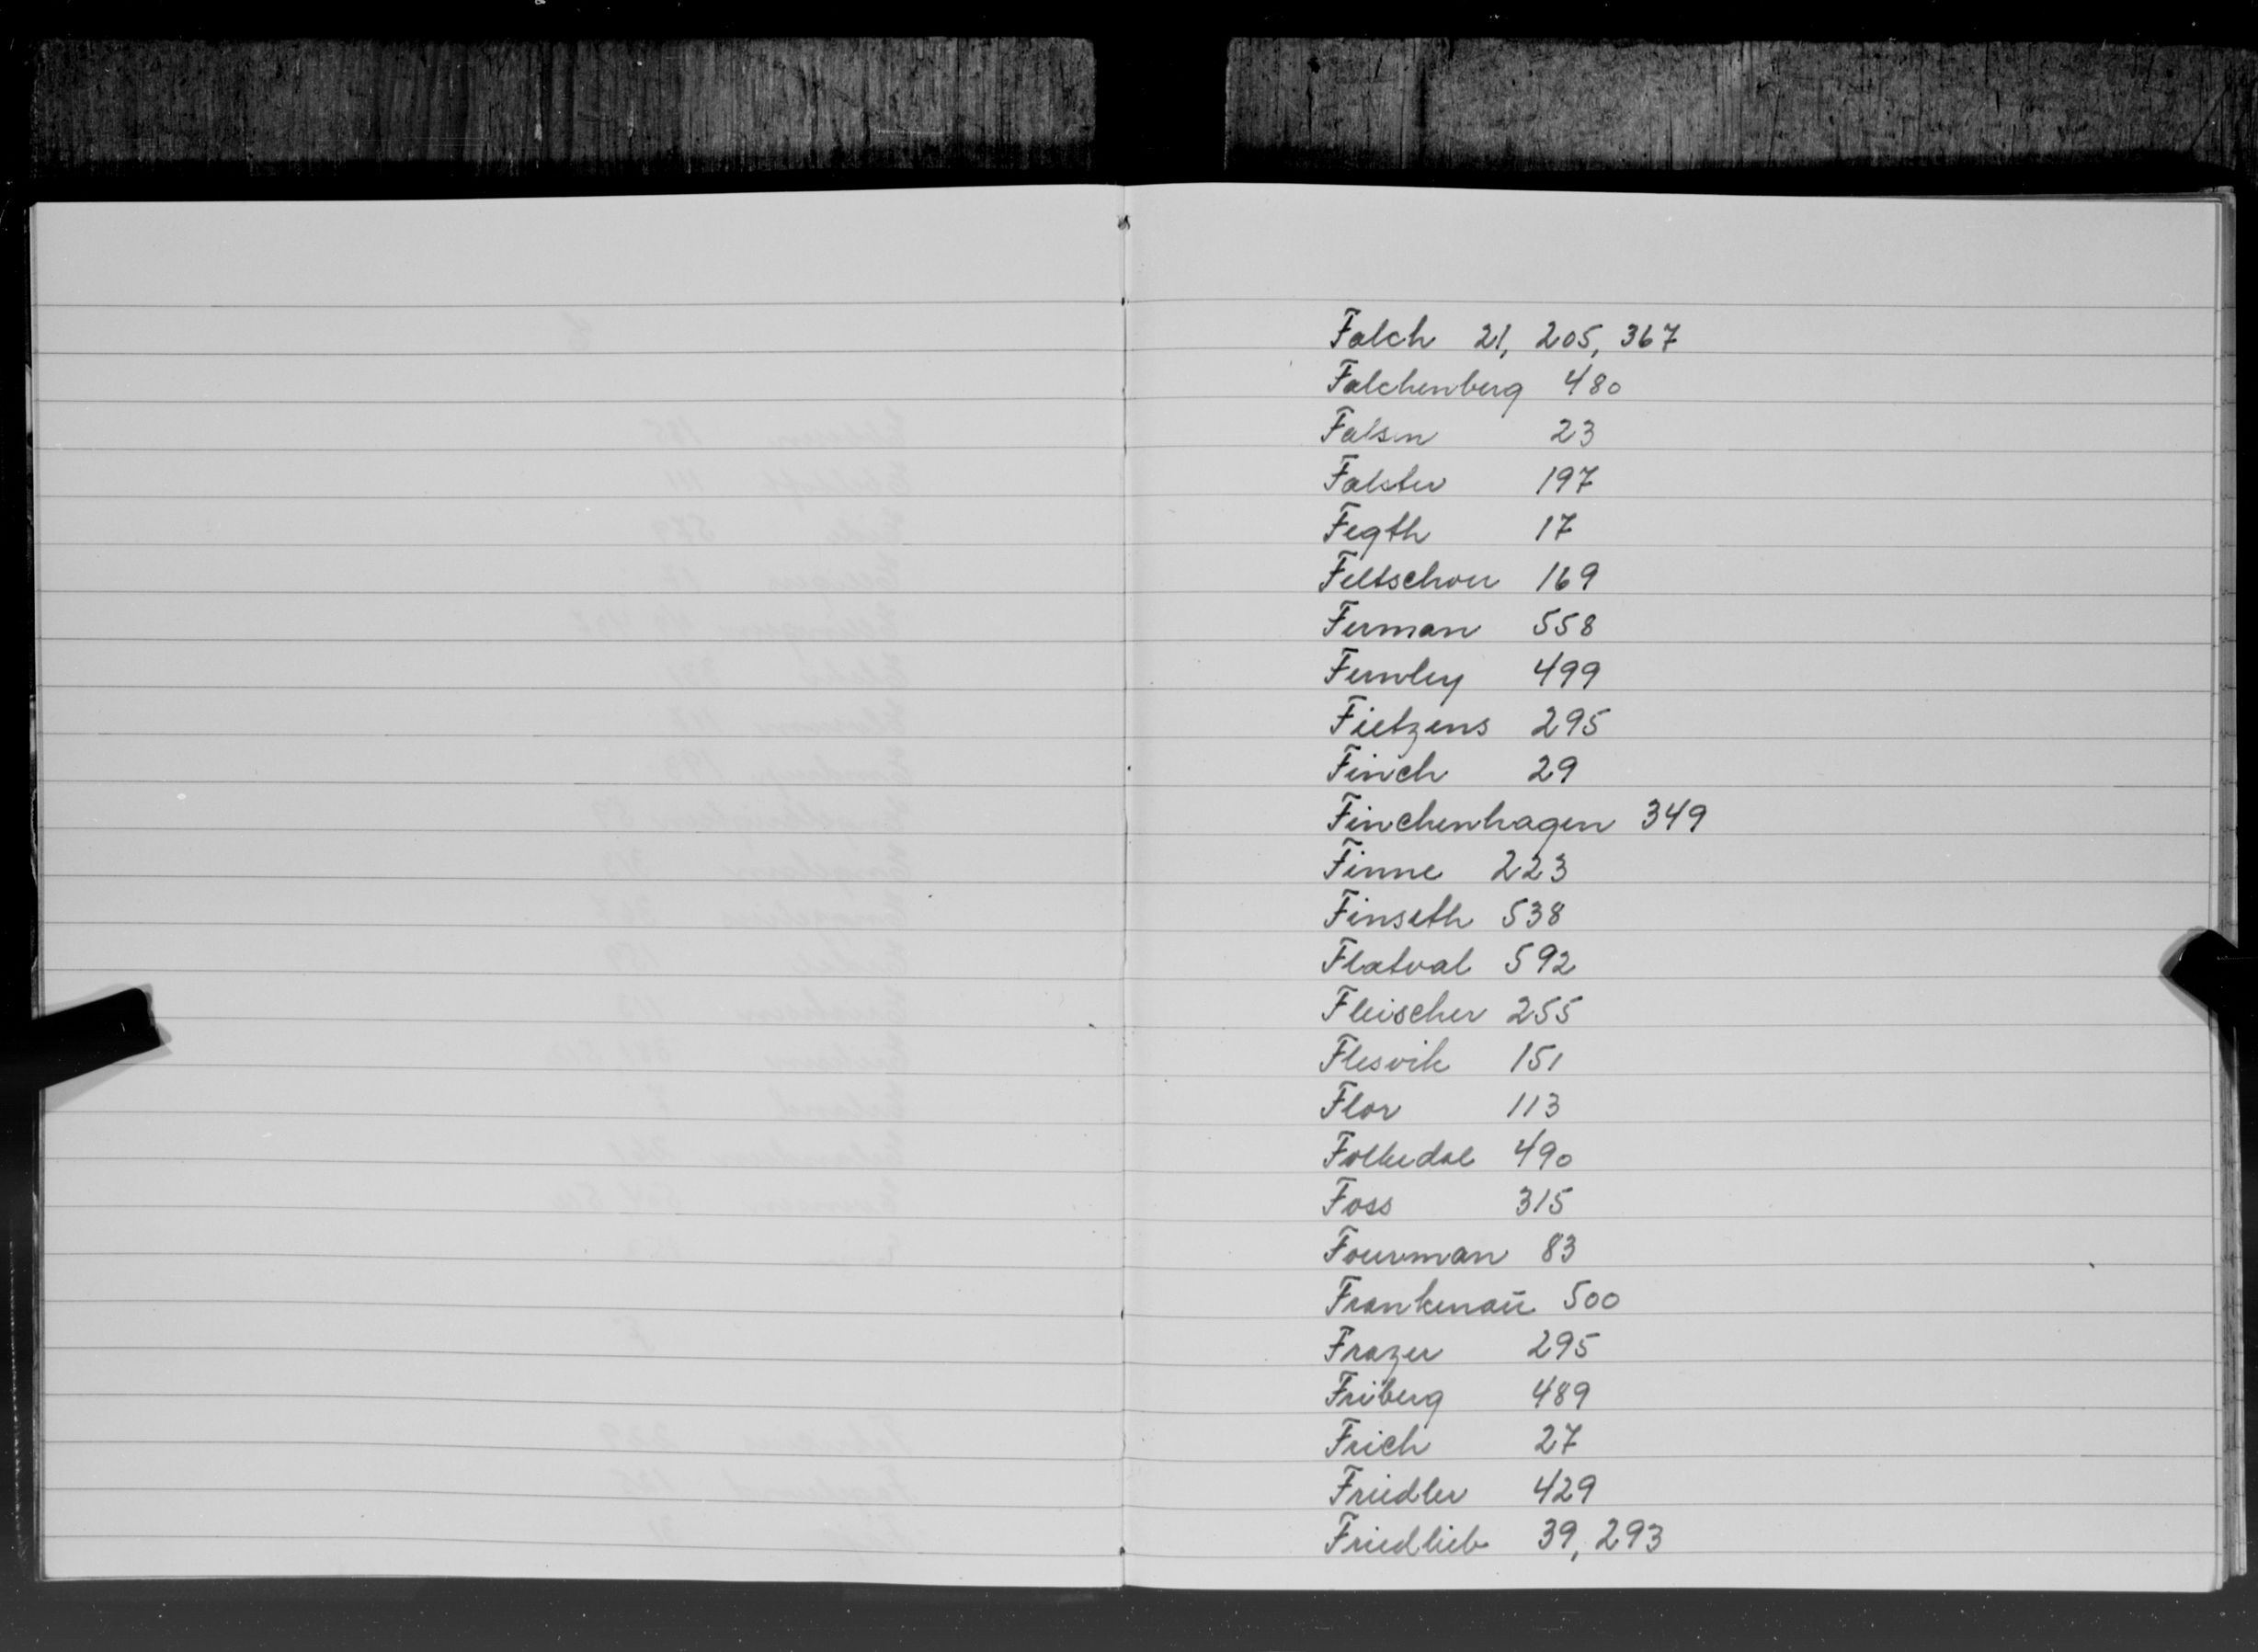 Falch 21, 205, 367
Falchenberg 480
Falsen 23
Falster 197
Fegth 17
Feltschou 169
Ferman 558
Fernley 499
Fietzens 295
Finch 29
Finchenhagen 349
Finne 223
Finseth 538
Flatval 592
Fleischer 255
Flesvik 151
Flor 113
Folkedal 490
Foss 315
Fourman 83
Frankenaü 500
Frazer 295
Friberg 489
Frich 27
Friedler 429
Friedlieb 39, 293